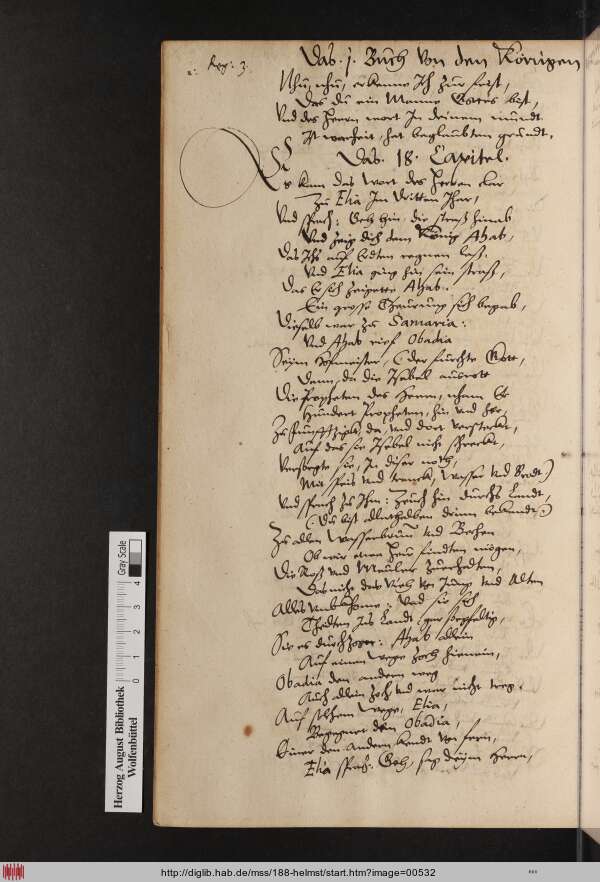 2. Reg: 3. Das .j. Buch Von den Königen
Nhu, nhu, erkenne Ich zur frist,
Das du ein Manne Gottes bist,
Vnd des Herrn wort In deinem mundt
Ist warheit, hat beglaubten grundt.
Das. 18. Capitel.
Es kam das Wort des Herren clar
Zu Elia Im dritten Jhar,
Vnd sprach: Geh hin, die straß hinab
Vnd zeig dich dem König Ahab,
Das Ichs auf Erdten regnen laß.
Vnd Elia ging hin sein straß,
Das Er sich zeigette Ahab.
Ein grosse Theurung sich begab,
Dieselb war zu Samaria:
Vnd Ahab rief Obadia
Seim Hofmeister, (der furchte Gott,
Denn, da die Isabel ausrott
Die Propheten des Herrn, nham Er
Hundert Propheten, hin vnd her,
Zu funfftzigk, da, vnd dort versteckt,
Auf das sie Isabel nicht schreckt,
Versorgte sie, In diser noth,
Mit speis vnd tranck, Wasser vnd Brodt.)
Vnd sprach zu Ihm: Zeuch hin durchs Landt,
(Du bist allenthalben drinn bekandt,)
Zu allen Wasserbrunn vnd Bechen
Ob wir etwan Heu findten mögen,
Die Roß vnd Mäuler zuerhalten,
Das nicht das Vieh von Jung vnd Alten
Alles vmbkhome: Vnd sie sich
Theilten Ins Landt, gar sorgfaltig,
Sie es durchzogen: Ahab allein
Auf einem Wege zoch hienein,
Obadia den andern weg
Auch allein zoch vnd war nicht treg.
Auf solchem Wege, Elia,
Begegnet dem Obadia,
Einer den andern kendt von fern,
Elia sprach. Geh, sag deinem Herrn,
Herzog August Bibliothek
Wolfenbüttel
0 1 2 3 4
Gray Scale
http://diglib.hab.de/mss/188-helmst/start.htm?image=00532